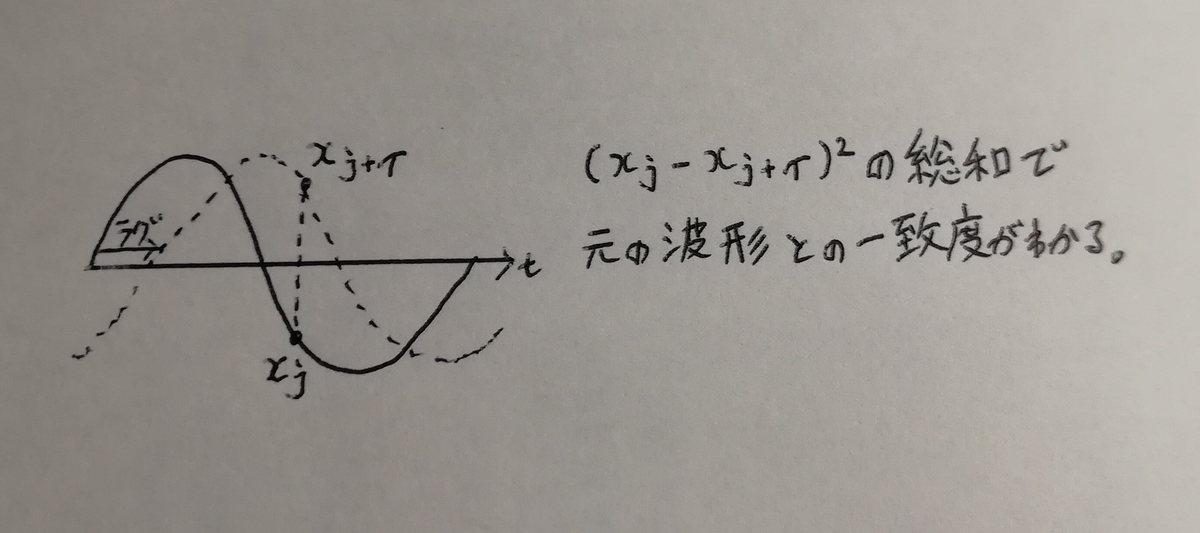 x_{j+τ}
ラグ
t
x_j
(x_j - x_{j+τ})² の総和で
元の波形との一致度がわかる。